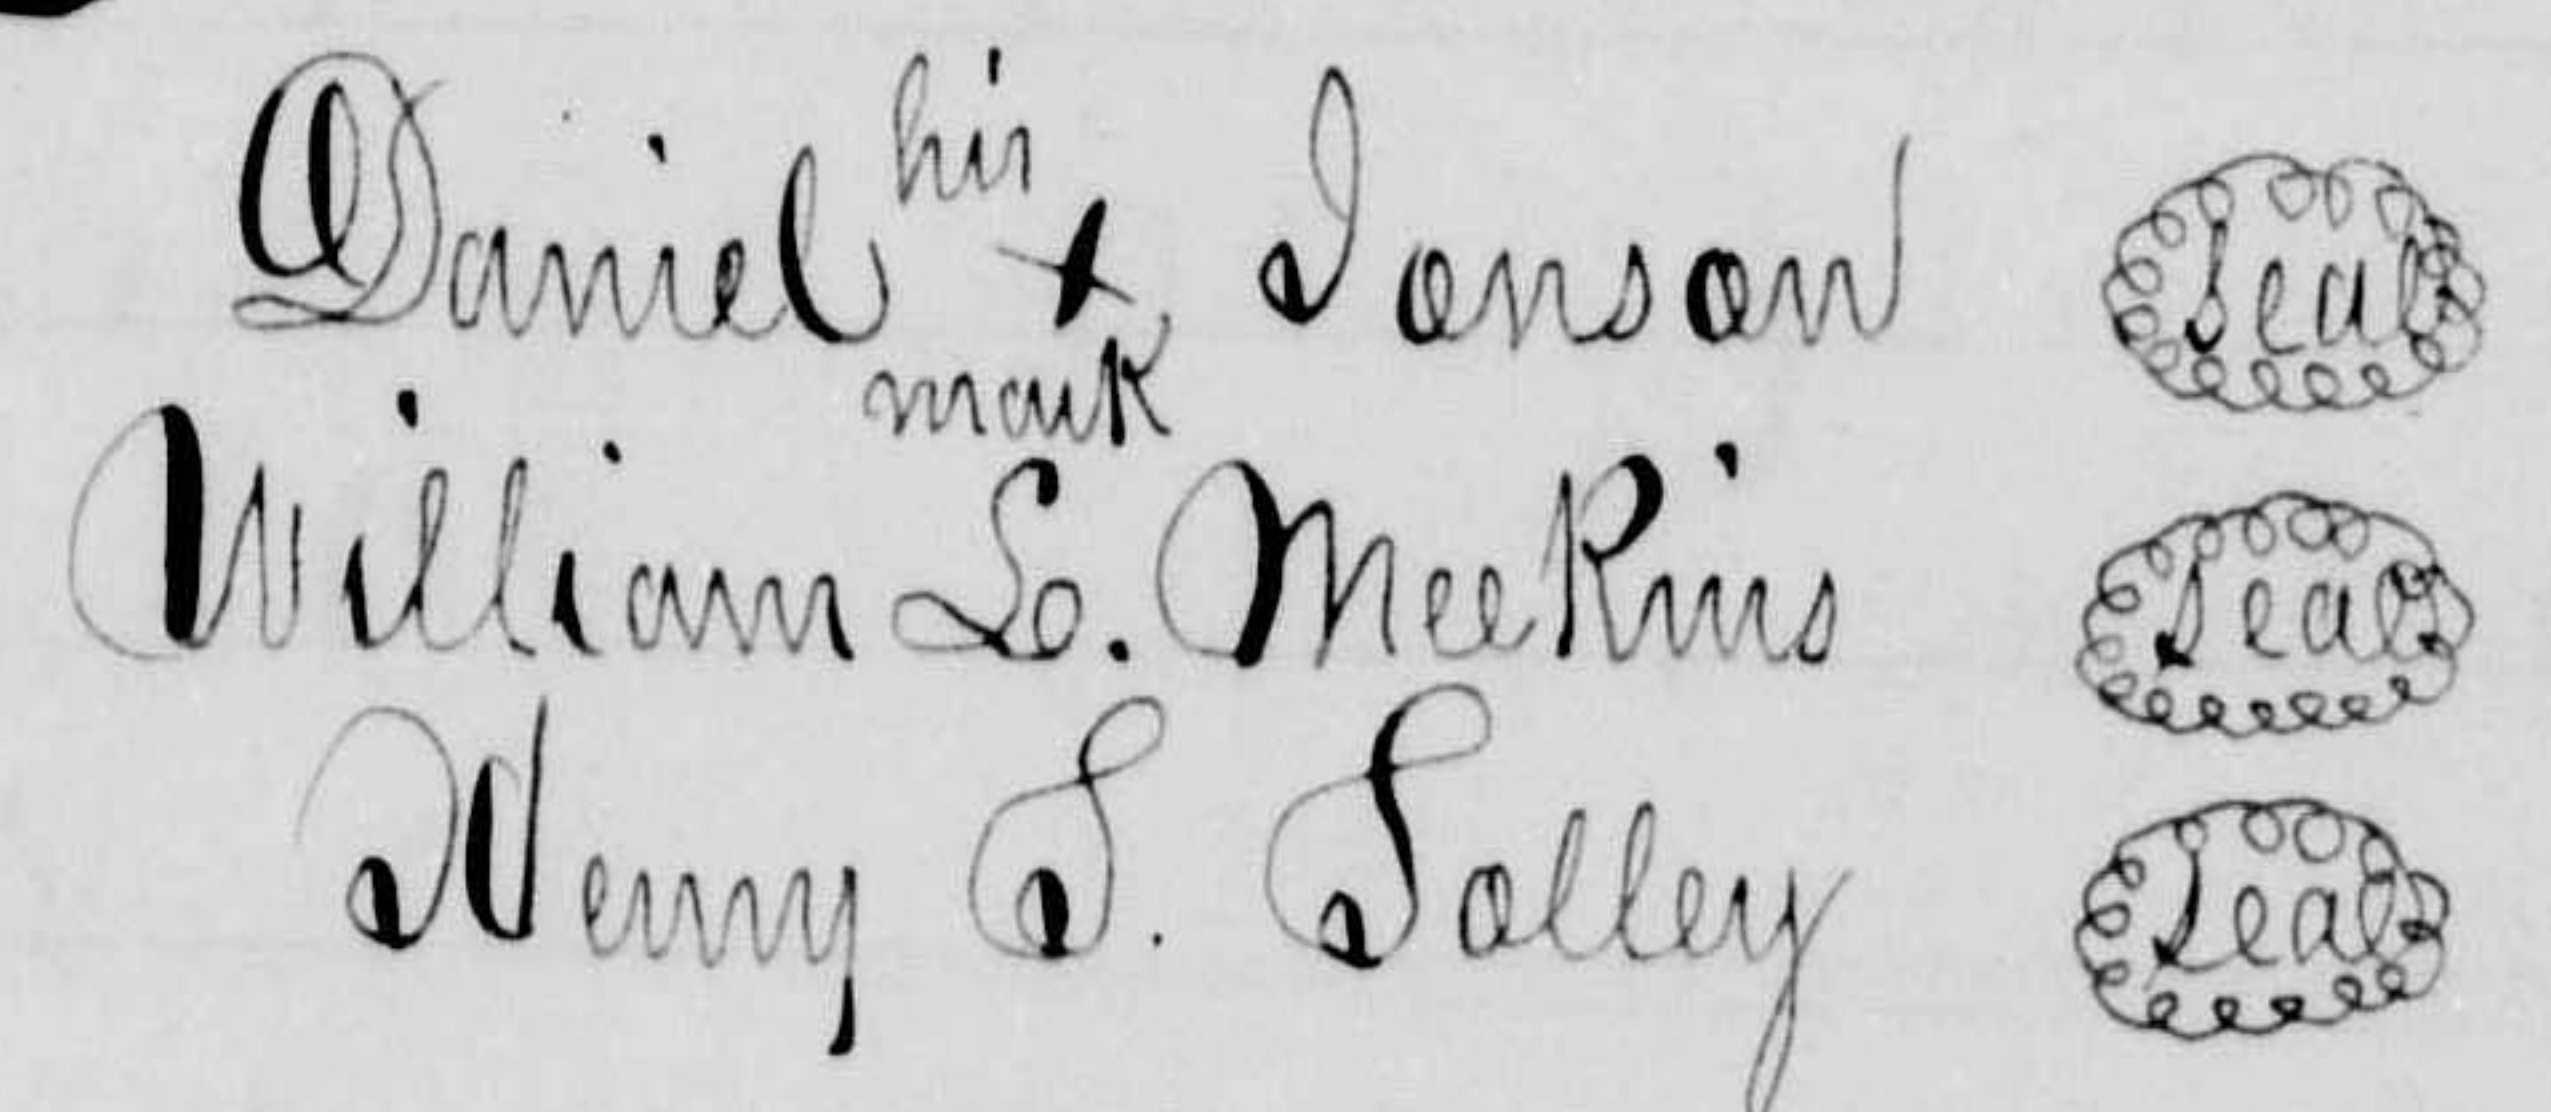 Daniel his + mark Jonson Seal
William S. Meekins Seal
Henry S. Solley Seal